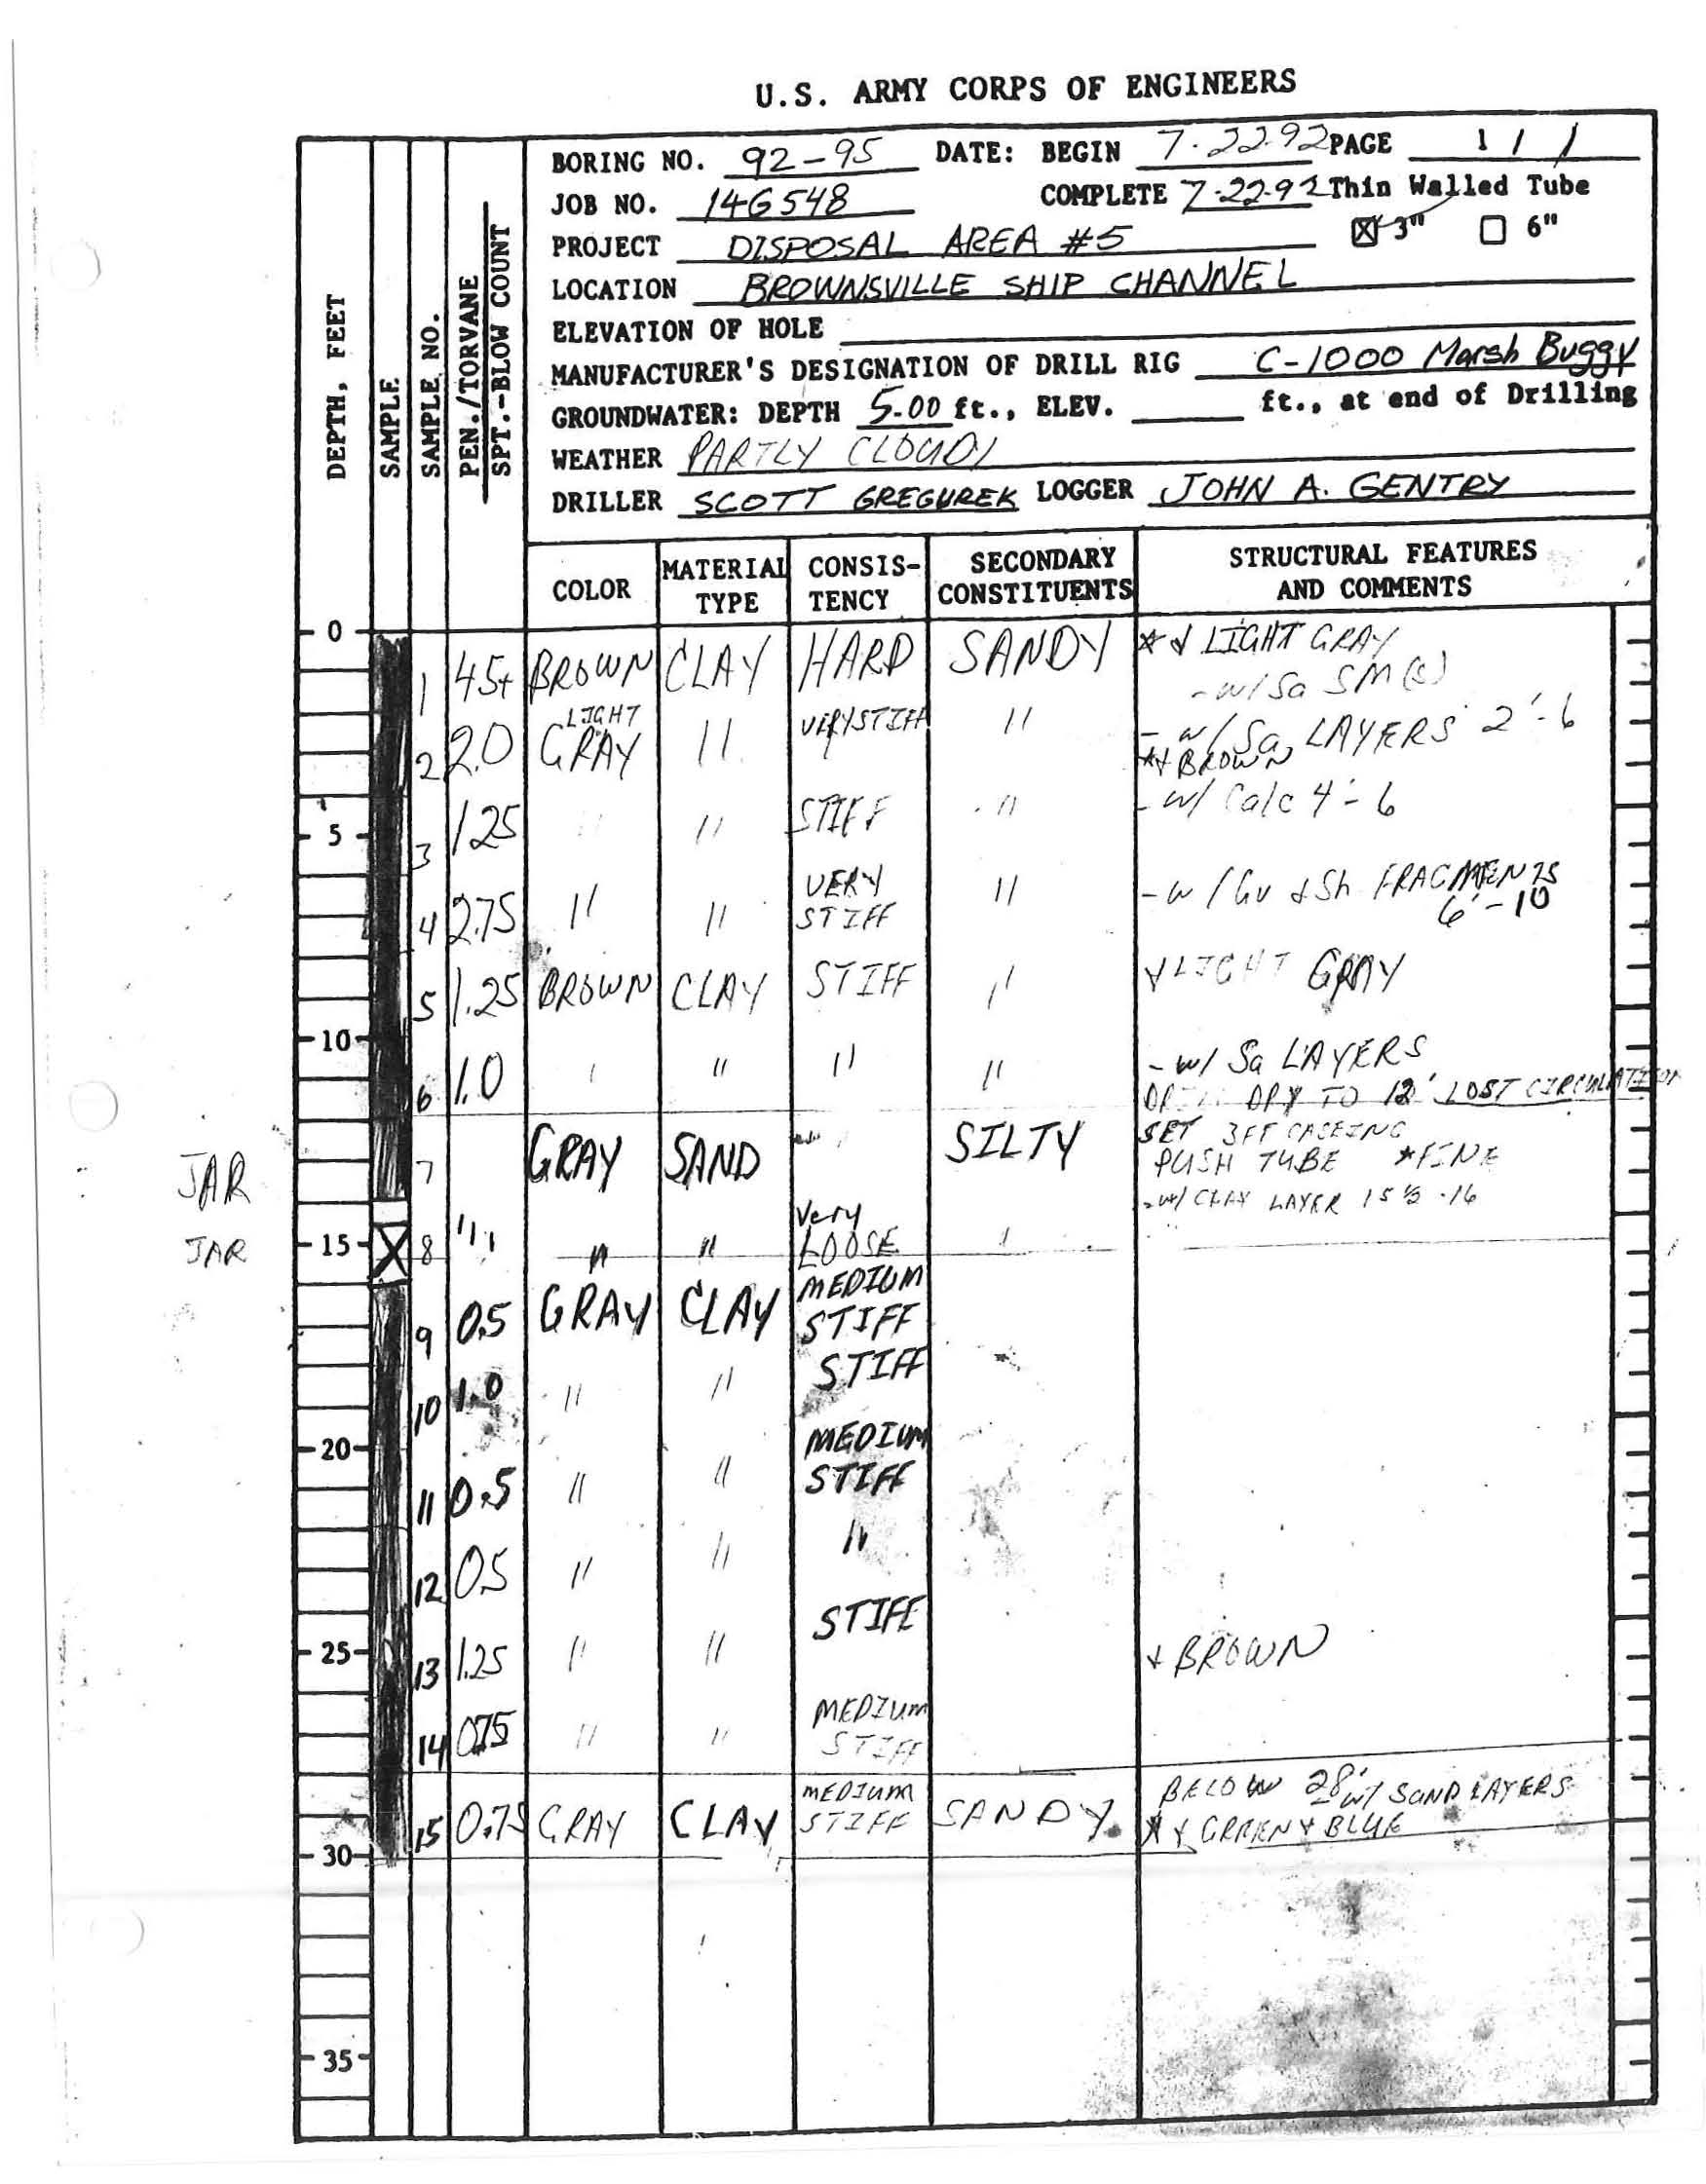 U.S. ARMY CORPS OF ENGINEERS
BORING NO. 92-95 DATE: BEGIN 7-22-92 PAGE 1 / 1
JOB NO. 14G548 COMPLETE 7-22-92 Thin Walled Tube
PROJECT DISPOSAL AREA #5 ☒ 3" ☐ 6"
LOCATION BROWNSVILLE SHIP CHANNEL
ELEVATION OF HOLE
MANUFACTURER'S DESIGNATION OF DRILL RIG C-1000 Marsh Buggy
GROUNDWATER: DEPTH 5.00 ft., ELEV. ft., at end of Drilling
WEATHER PARTLY CLOUDY
DRILLER SCOTT GREGUREK LOGGER JOHN A. GENTRY
DEPTH, FEET
SAMPLE
SAMPLE NO.
PEN./TORVANE
SPT.-BLOW COUNT
COLOR MATERIAL TYPE CONSIS-TENCY SECONDARY CONSTITUENTS STRUCTURAL FEATURES AND COMMENTS
0
1 4.5+ BROWN CLAY HARD SANDY * & LIGHT GRAY
-w/ Sa SM (s)
2 2.0 LIGHT GRAY " VERY STIFF " - w/ Sa LAYERS 2'-6
*& BROWN
5
3 1.25 " " STIFF " - w/ Calc 4'-6
4 2.75 " " VERY STIFF " -w/ Gv & Sh FRAGMENTS
6'-10
5 1.25 BROWN CLAY STIFF " & LIGHT GRAY
10
6 1.0 " " " " -w/ Sa LAYERS
DRY TO 12' LOST CIRCULATION
JAR 7 GRAY SAND SILTY SET 3FT CASEING
PUSH TUBE *FINE
-w/ CLAY LAYER 15½-16
JAR 15 8 " " Very LOOSE
9 0.5 GRAY CLAY MEDIUM STIFF
10 1.0 " " STIFF
20
11 0.5 " " MEDIUM STIFF
12 0.5 " " "
25
13 1.25 " " STIFF & BROWN
14 0.75 " " MEDIUM STIFF
15 0.75 GRAY CLAY MEDIUM STIFF SANDY BELOW 28' w/ SAND LAYERS
* & GREEN & BLUE
30
35